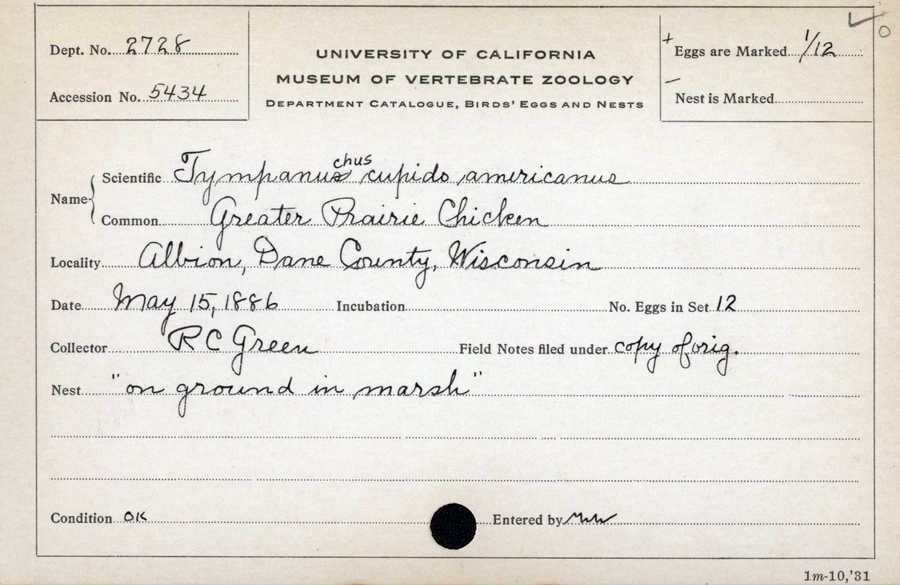 Dept. No. 2728
Accession No. 5434
UNIVERSITY OF CALIFORNIA
MUSEUM OF VERTEBRATE ZOOLOGY
DEPARTMENT CATALOGUE, BIRDS' EGGS AND NESTS
+ Eggs are Marked 1/12
– Nest is Marked
Name { Scientific Tympanuschus cupido americanus
Common Greater Prairie Chicken
Locality Albion, Dane County, Wisconsin
Date May 15, 1886 Incubation No. Eggs in Set 12
Collector R C Green Field Notes filed under copy of orig.
Nest "on ground in marsh"
Condition OK Entered by
1m-10,'31